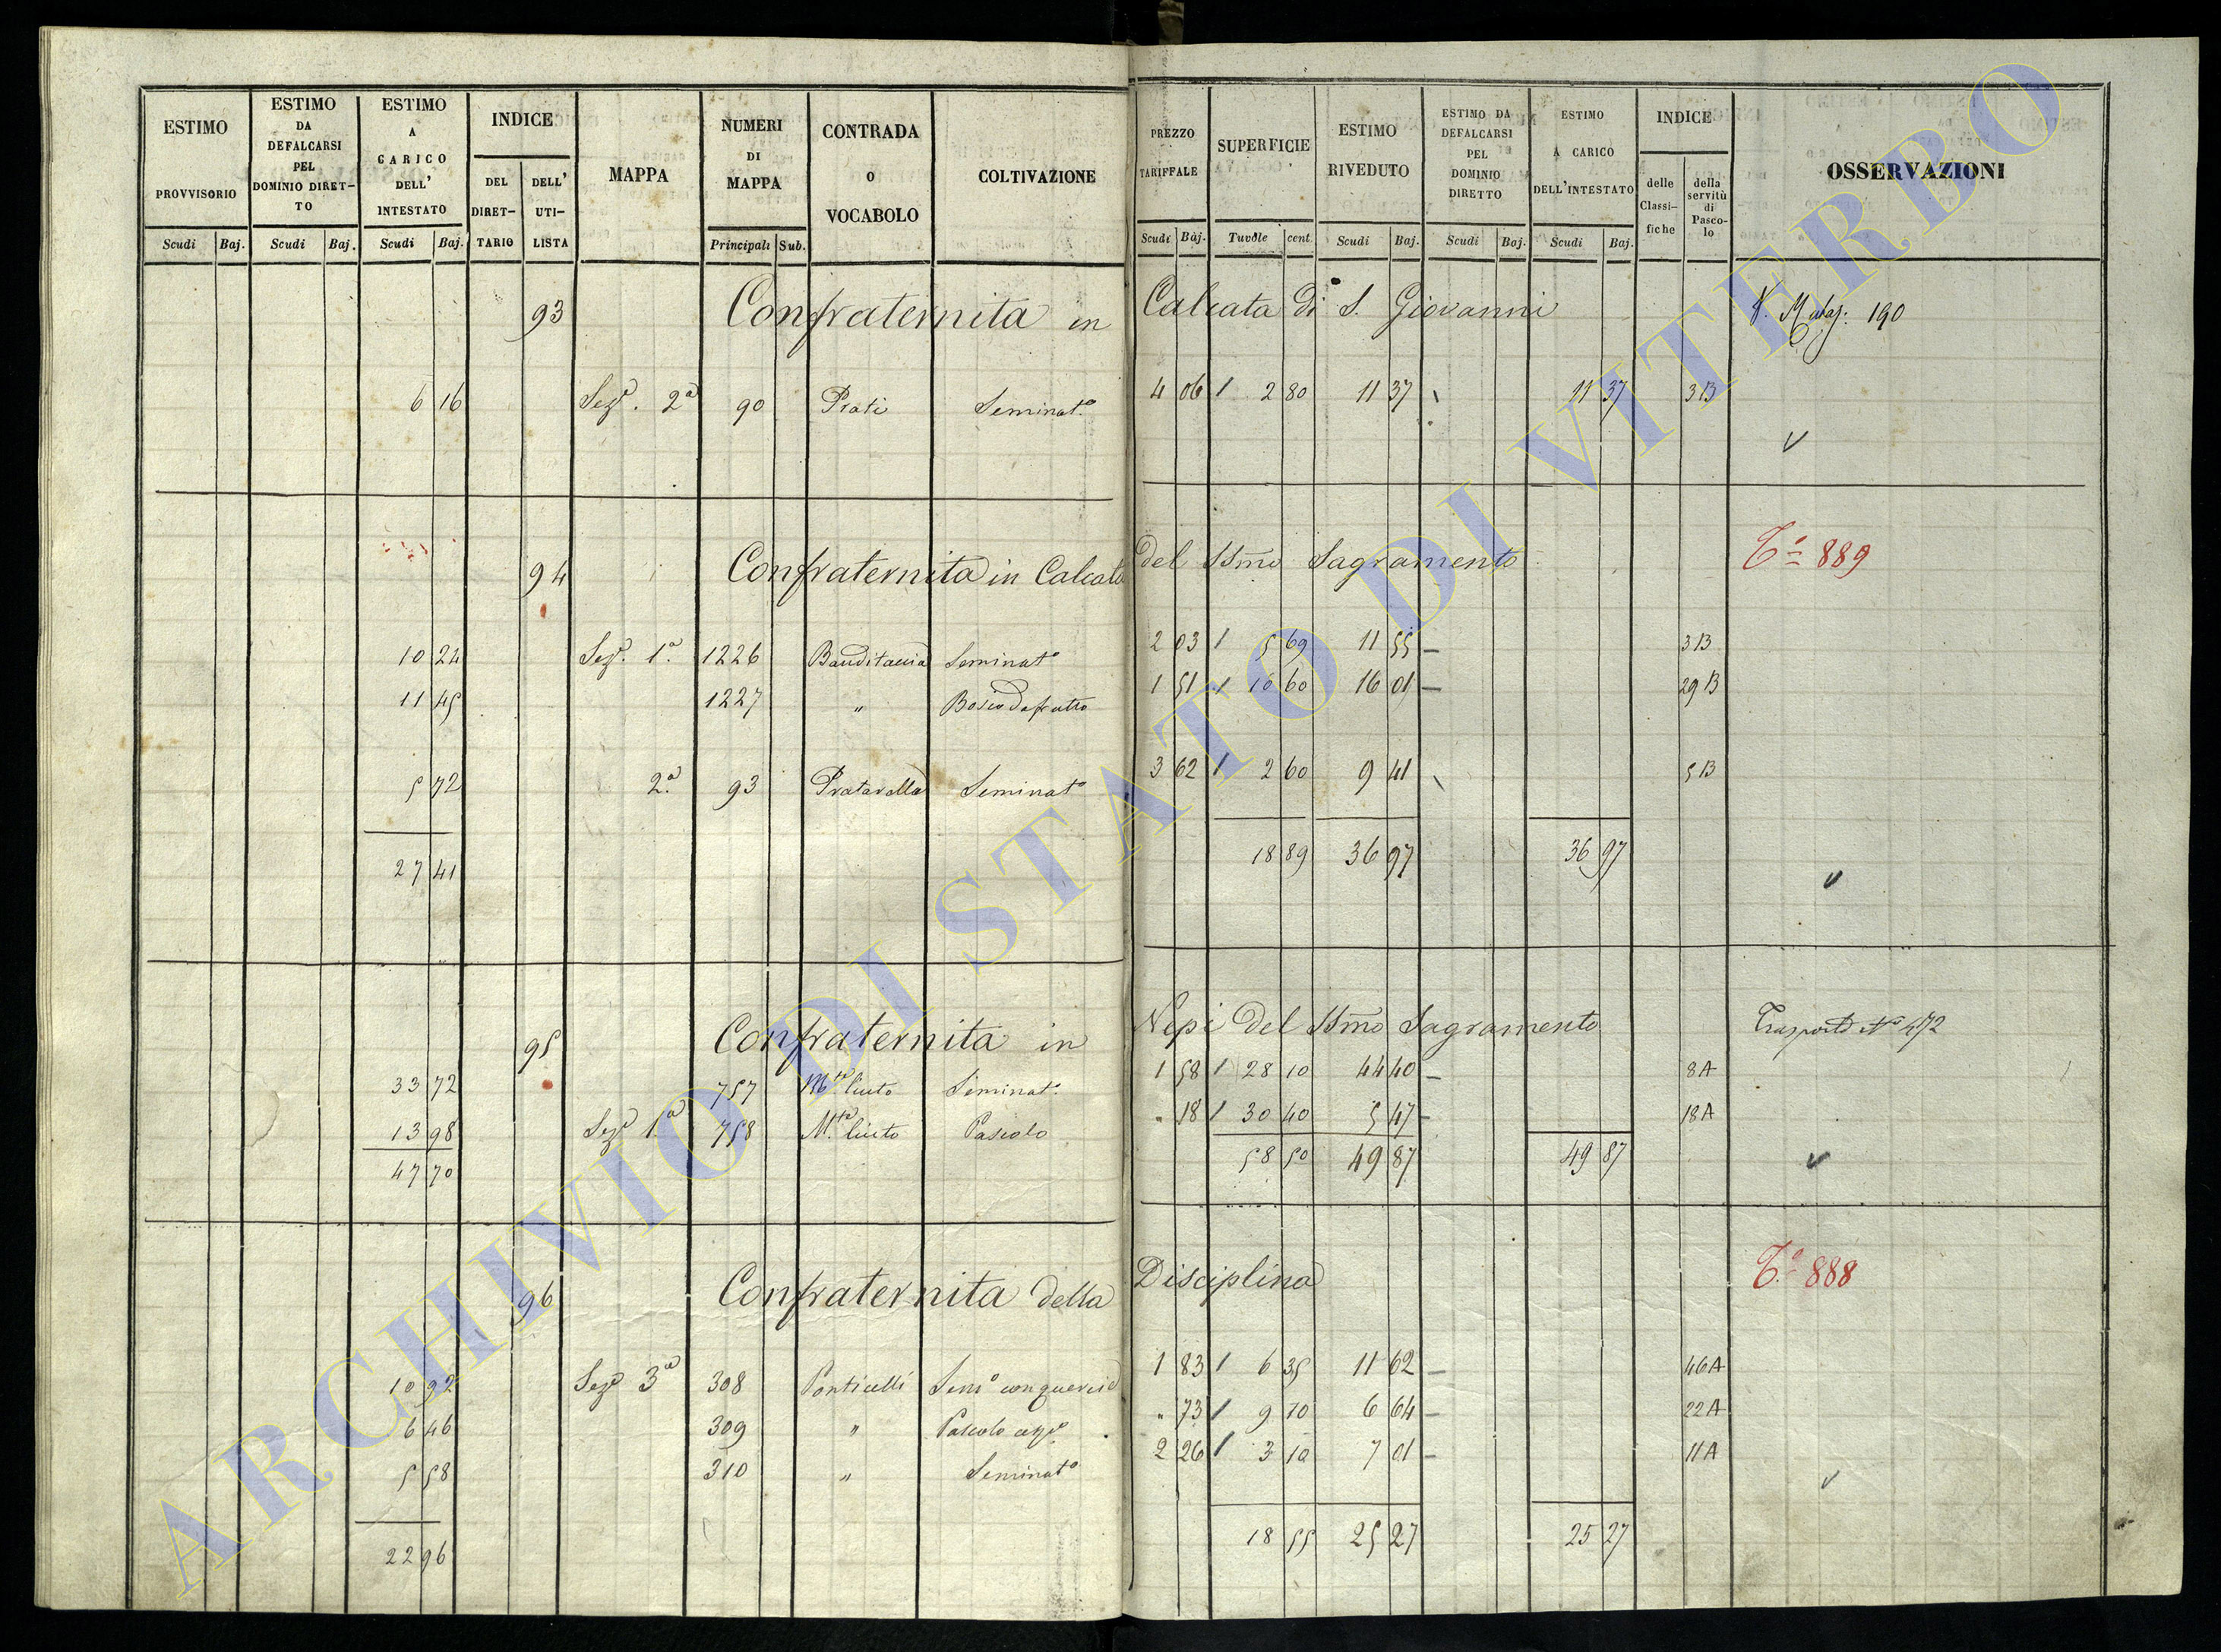 ESTIMO PROVVISORIO Scudi Baj.
ESTIMO DA DEFALCARSI PEL DOMINIO DIRET-TO Scudi Baj.
ESTIMO A CARICO DELL' INTESTATO Scudi Baj.
INDICE DEL DIRET-TARIO DELL' UTI-LISTA
MAPPA
NUMERI DI MAPPA Principali Sub.
CONTRADA O VOCABOLO
COLTIVAZIONE
PREZZO TARIFFALE Scudi Baj.
SUPERFICIE Tuvole cent.
ESTIMO RIVEDUTO Scudi Baj.
ESTIMO DA DEFALCARSI PEL DOMINIO DIRETTO Scudi Baj.
ESTIMO A CARICO DELL'INTESTATO Scudi Baj.
INDICE delle Classi-fiche della servitù di Pasco-lo
OSSERVAZIONI
93 Confraternita in Calcata di S. Giovanni 190
6 16 Sez.e 2a 90 Prati Seminato 4 06 1 2 80 11 37 11 37 3B
94 Confraternita in Calcata del SSmo Sagramento To 889
10 24 Sez.e 1a 1226 Banditaccia Seminato 2 03 1 5 69 11 55 3B
11 45 1227 " Bosco da frutto 1 51 1 10 60 16 01 29 B
5 72 2a 93 Pratarella Seminato 3 62 1 2 60 9 41 5B
27 41 18 89 36 97 36 97
95 Confraternita in Nepi del SSmo Sagramento Trasporto No 472
33 72 757 Mte liuto Seminato 1 58 1 28 10 44 40 8A
13 98 Sez.e 1a 758 Mte liuto Pascolo " 18 1 30 40 5 47 18A
47 70 58 50 49 87 49 87
96 Confraternita della Disciplina To 888
10 92 Sez.e 3a 308 Ponticelli Semo con quercie 1 83 1 6 35 11 62 46A
6 46 309 " Pascolo " 73 1 9 10 6 64 22A
5 58 310 " Seminato 2 26 1 3 10 7 01 11A
22 96 18 55 25 27 25 27
ARCHIVIO DI STATO DI VITERBO